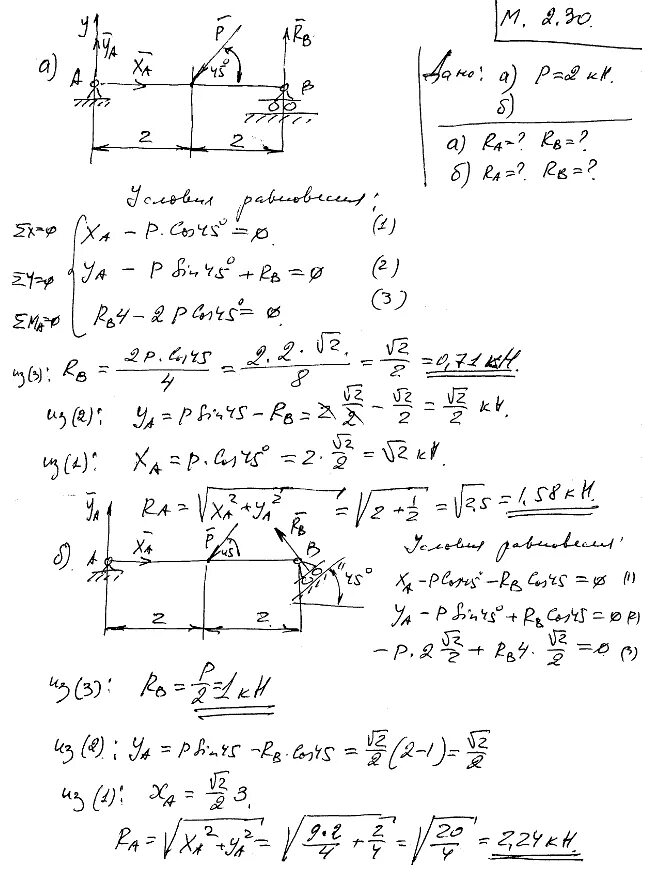 М. 2.30.
Дано: а) P=2 кН.
б)
а) RA=? RB=?
б) RA=? RB=?
а) y ȲA A X̄A P̄ 45° R̄B B
2 2
Условия равновесия:
ΣX=0 XA − P·Cos45°=0. (1)
ΣY=0 YA − P Sin45°+RB=0 (2)
ΣMA=0 RB4−2PCos45°=0. (3)
из(3): RB = 2P·Cos45/4 = 2·2·√2./8 = √2/2 = 0,71 кН.
из(2): YA=PSin45−RB=2 √2/2 − √2/2 = √2/2 кН.
из(1): XA=P·Cos45°=2·√2/2=√2 кН.
RA=√(XA²+YA²)=√(2+1/2)=√2,5=1,58 кН.
б) ȲA A X̄A P̄ 45 R̄B B 45°
2 2
Условия равновесия:
XA−PCos45°−RBCos45=0 (1)
YA−PSin45°+RBCos45=0 (2)
−P·2 √2/2 + RB4·√2/2=0 (3)
из(3): RB=P/2=1 кН
из(2): YA=PSin45−RB·Cos45=√2/2(2−1)=√2/2
из(1): XA=√2/2 3.
RA=√(XA²+YA²)=√(9·2/4+2/4)=√(20/4)=2,24 кН.